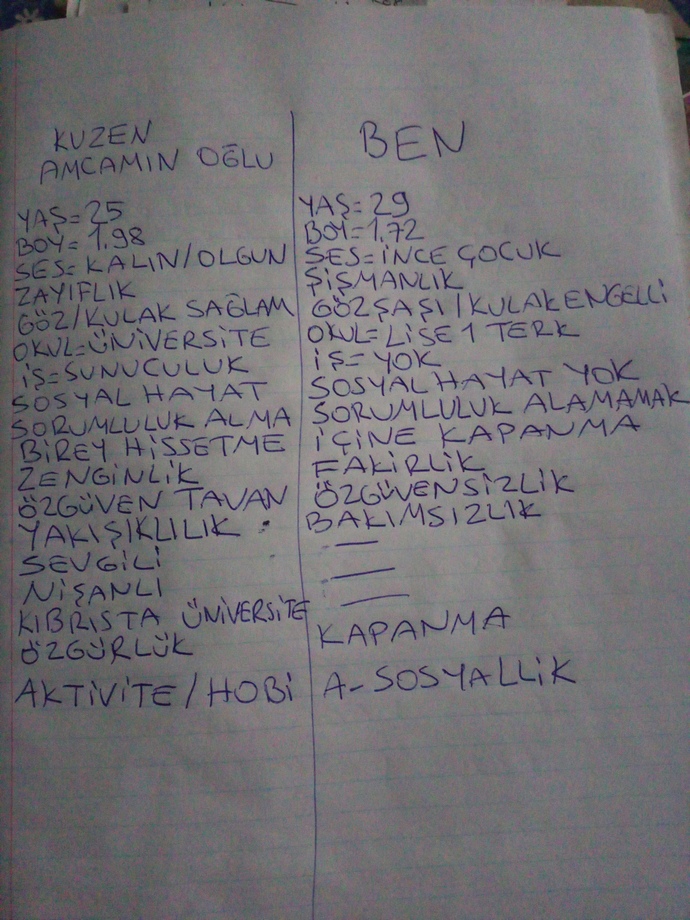 KUZEN
AMCAMIN OĞLU
YAŞ=25
BOY=1.98
SES=KALIN/OLGUN
ZAYIFLIK
GÖZ/KULAK SAĞLAM
OKUL=ÜNİVERSİTE
İŞ=SUNUCULUK
SOSYAL HAYAT
SORUMLULUK ALMA
BİREY HİSSETME
ZENGİNLİK
ÖZGÜVEN TAVAN
YAKIŞIKLILIK
SEVGİLİ
NİŞANLI
KIBRISTA ÜNİVERSİTE
ÖZGÜRLÜK
AKTİVİTE/HOBİ
BEN
YAŞ=29
BOY=1,72
SES=İNCE ÇOCUK
ŞİŞMANLIK
GÖZ ŞAŞI/KULAK ENGELLİ
OKUL=LİSE 1 TERK
İŞ=YOK
SOSYAL HAYAT YOK
SORUMLULUK ALAMAMAK
İÇİNE KAPANMA
FAKİRLİK
ÖZGÜVENSİZLİK
BAKIMSIZLIK
—
—
—
KAPANMA
A-SOSYALLİK